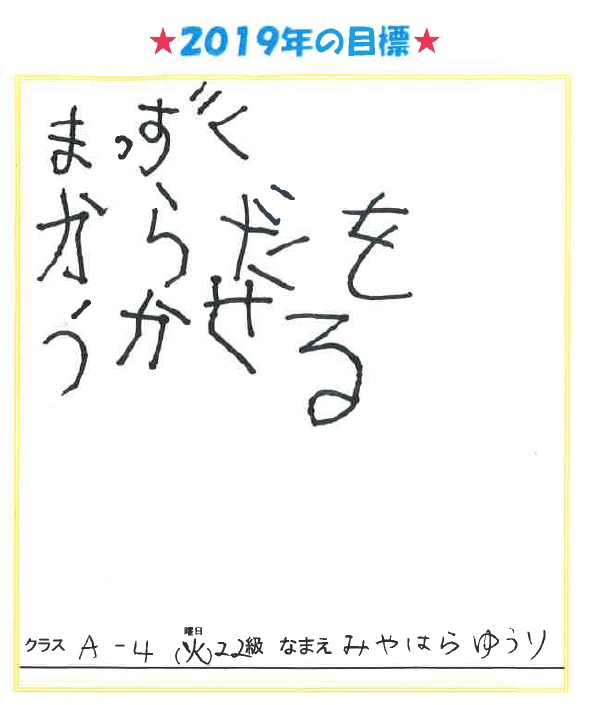 ★2019年の目標★
まっすぐ
からだを
うかせる
曜日
クラス A-4 (火)22級 なまえ みやはらゆうり